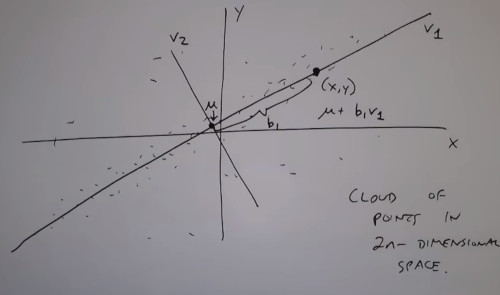 Y
V2
V1
μ
(x,y)
μ + b1V1
b1
X
CLOUD OF
POINTS IN
2n-DIMENSIONAL
SPACE.